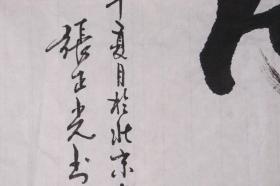 夏月於北京
張正光书